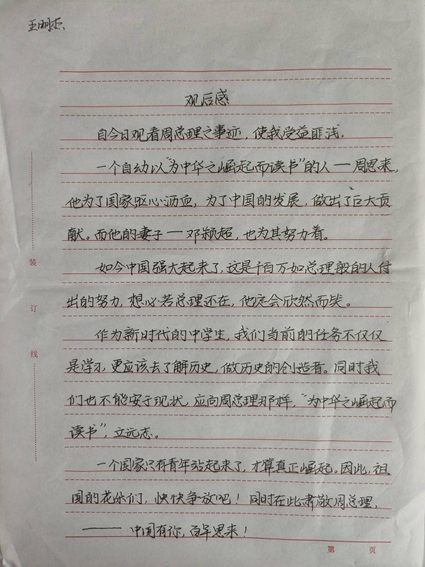 观后感
自今日观看周总理之事迹，使我受益匪浅。
一个自幼以“为中华之崛起而读书”的人——周恩来，
他为了国家呕心沥血，为了中国的发展，做出了巨大贡
献，而他的妻子——邓颖超，也为其努力着。
如今中国强大起来了，这是千百万如总理般的人付
出的努力，想必若总理还在，他定会欣然而笑。
作为新时代的中学生，我们当前的任务不仅仅
是学习，更应该去了解历史，做历史的创造者。同时我
们也不能安于现状，应向周总理那样，“为中华之崛起而
读书”，立远志。
一个国家只有青年站起来了，才算真正崛起，因此，祖
国的花朵们，快快争放吧！同时在此肃敬周总理，
——中国有你，百年恩来！
装
订
线
第 页